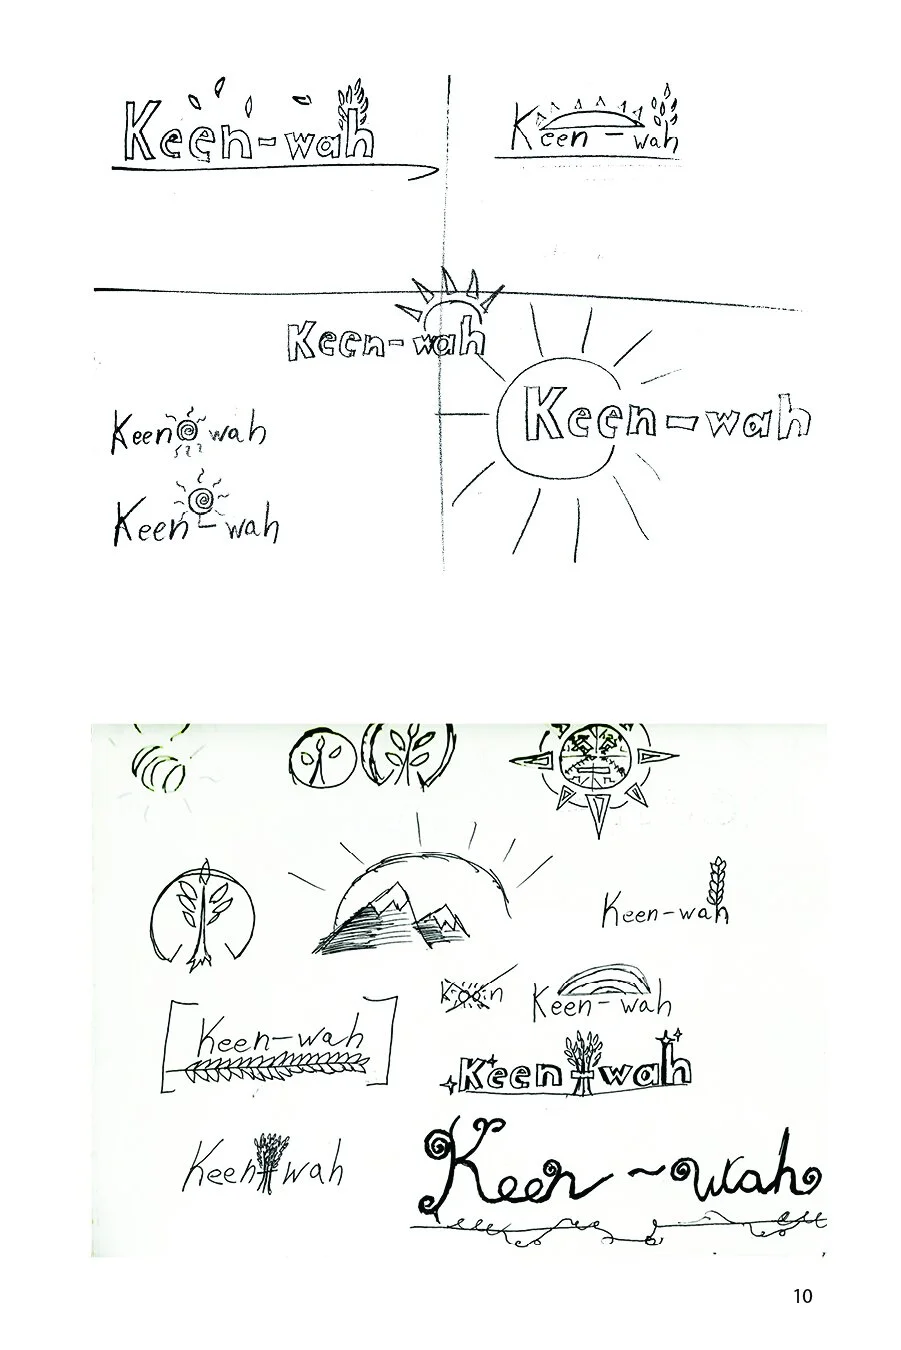 Keen-wah
Keen-wah
Keen-wah
Keen-wah
Keen wah
Keen-wah
Keen-wah
Koon
Keen-wah
Keen-wah
Keen wah
Keen wah
Keen-wah
10